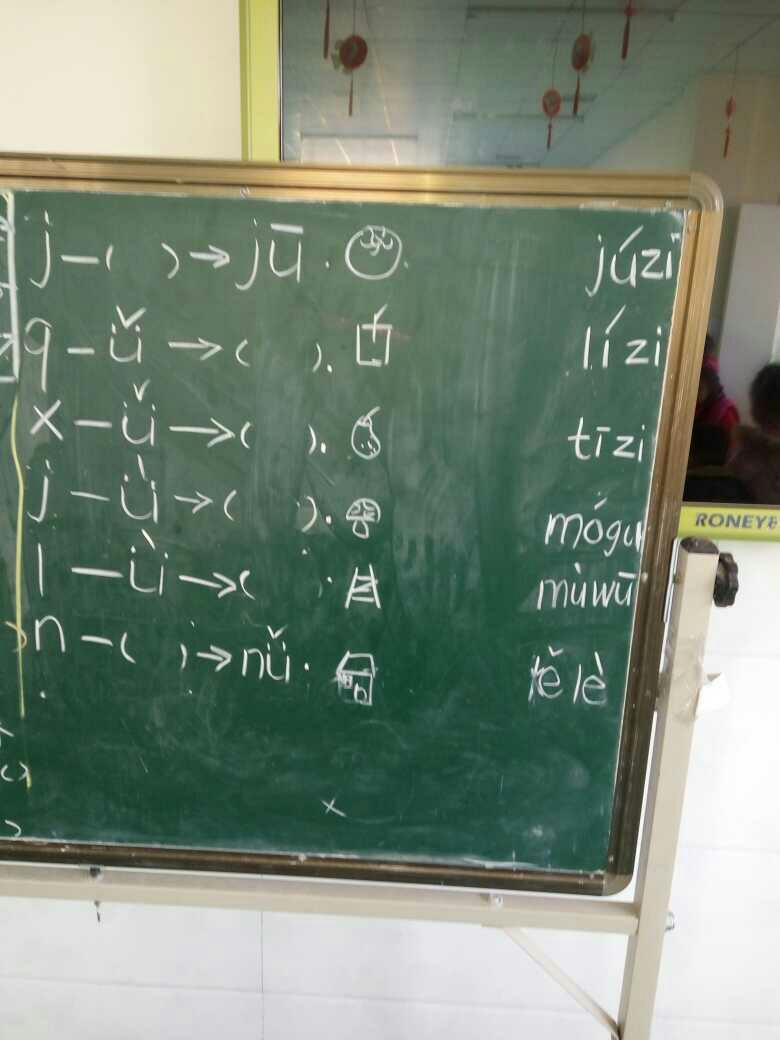 j — ( ) → jū . júzi
q — ǚ → ( ). lízi
x — ǚ → ( ). tīzi
j — ǜ → ( ). mógu
l — ǜ → ( ). mùwū
n — ( ) → nǚ . kělè
RONEY